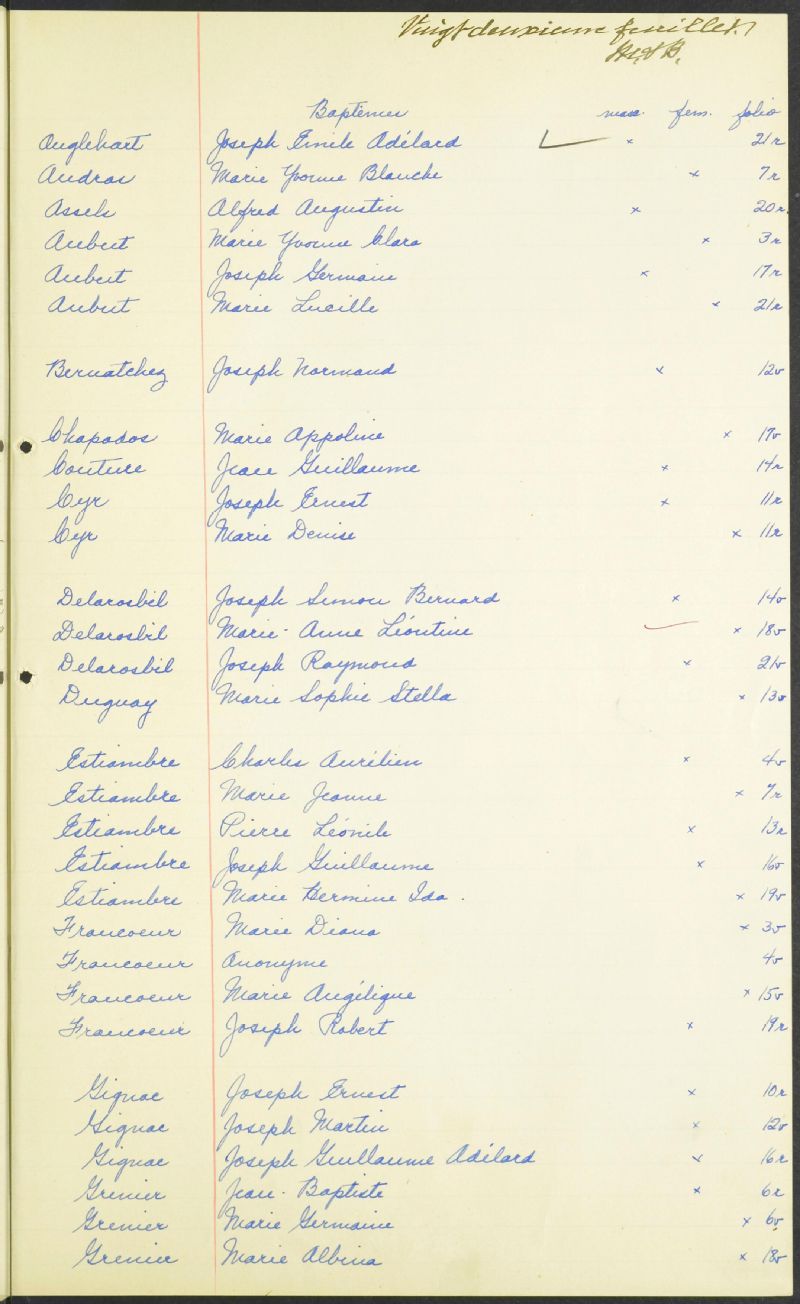 Vingt deuxieme feuillet.
Baptêmes masc. fem. folio
Anglehart Joseph Emile Adélard x 21r
Audras Marie Yvonne Blanche x 7r
Assels Alfred Augustin x 20r.
Aubert Marie Yvonne Clara x 3r
Aubert Joseph Germain x 17r
Aubert Marie Lucille x 21r
Bernatchez Joseph Normand x 12v
Chapados Marie Appoline x 17v
Couture Jean Guillaume x 14r
Cyr Joseph Ernest x 11r
Cyr Marie Denise x 11r
Delarosbil Joseph Simon Bernard x 14v
Delarosbil Marie-Anne Léontine x 18v
Delarosbil Joseph Raymond x 21v
Duguay Marie Sophie Stella x 13v
Estiambre Charles Aurélien x 4v
Estiambre Marie Jeanne x 7r
Estiambre Pierre Léonile x 13r
Estiambre Joseph Guillaume x 16v
Estiambre Marie Hermine Ida. x 19v
Francoeur Marie Diana x 3v
Francoeur Anonyme 4v
Francoeur Marie Angélique x 15v
Francoeur Joseph Robert x 19r
Gignac Joseph Ernest x 10r
Gignac Joseph Martin x 12v
Gignac Joseph Guillaume Adélard x 16r
Grenier Jean-Baptiste x 6r
Grenier Marie Germaine x 6v
Grenier Marie Albina x 18v